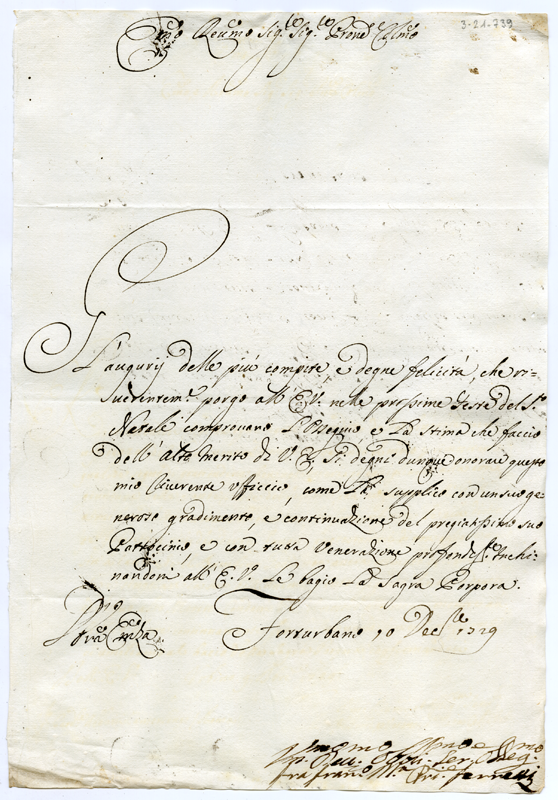 3-21-739
Emo Reumo Sig.re Sig.re Prone Colmo
Gl'augurij delle più compite, e degne felicità, che ri-
uerentem.te porgo all' E.V. nelle prossime feste del S.to
Natale comprouano l'Ossequio e la stima che faccio
dell' alto merito di V.E. Si degni dunque onorare questo
mio riuerente vfficio, come la supplico con un suo ge-
neroso gradimento, e continuazione del pregiatissimo suo
Patrocinio, e con tutta venerazione profondis.te inchi-
nandomi all' E.V. le bagio la Sagra Porpora.
Di
Vra Emza
Forturbano 10 Dec.re 1729